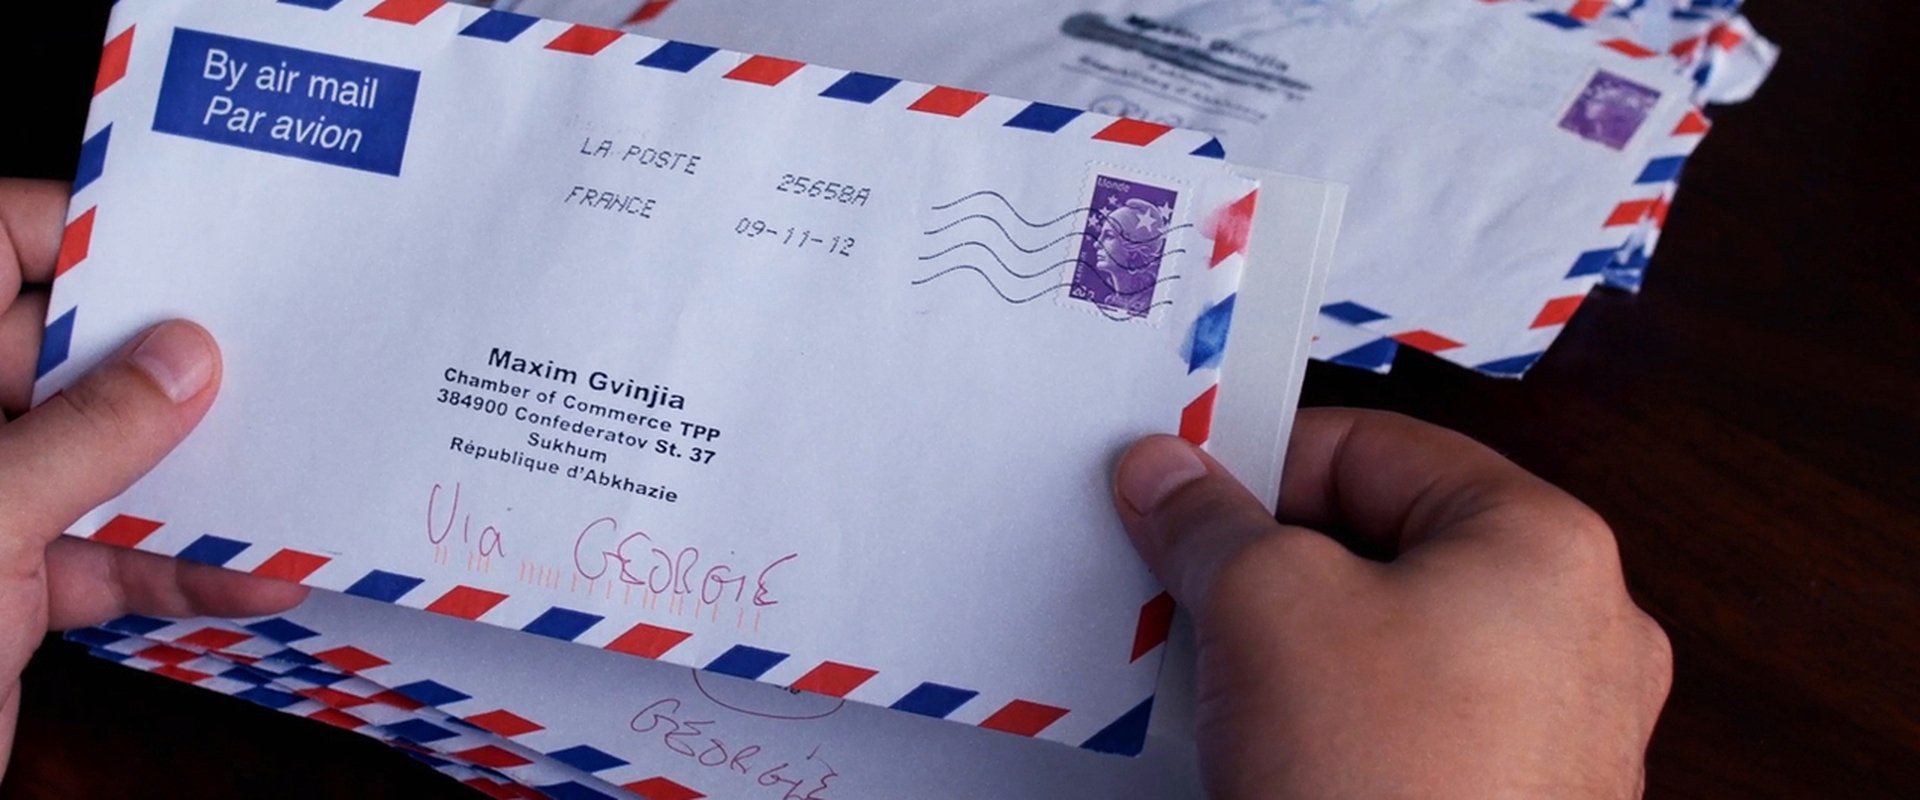 By air mail
Par avion
LA POSTE 25658A
FRANCE 09-11-12
Monde
Maxim Gvinjia
Chamber of Commerce TPP
384900 Confederatov St. 37
Sukhum
République d'Abkhazie
Via GEORGIE
GEORGIE